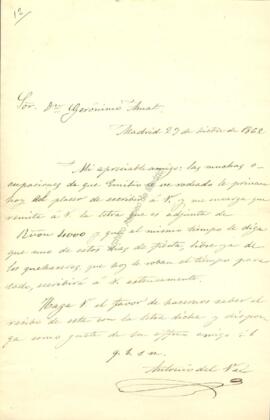 Sor. Dn. Gerónimo Amat
Madrid 27 de dicbre de 1862
Mi apreciable amigo: las muchas o-
cupaciones de que Emilio se ve rodeado le privan
hoy del placer de escribir á V. y me encarga que
remita á V. la letra que es adjunta de
Rvon y que al mismo tiempo le diga
que uno de estos dias de fiesta, libre ya de
los quehaceres, que hoy le roban el tiempo para
todo, escribirá á V. estensamente.
Haga V. el favor de hacernos saber el
recibo de esta con la letra dicha y dispon-
ga como guste de su affmo amigo
q. b. s. m.
Antonio del Val